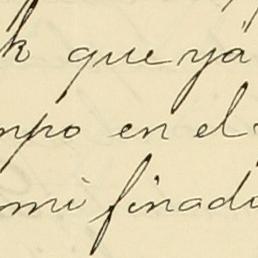 k que ya
mpo en el
mi finado